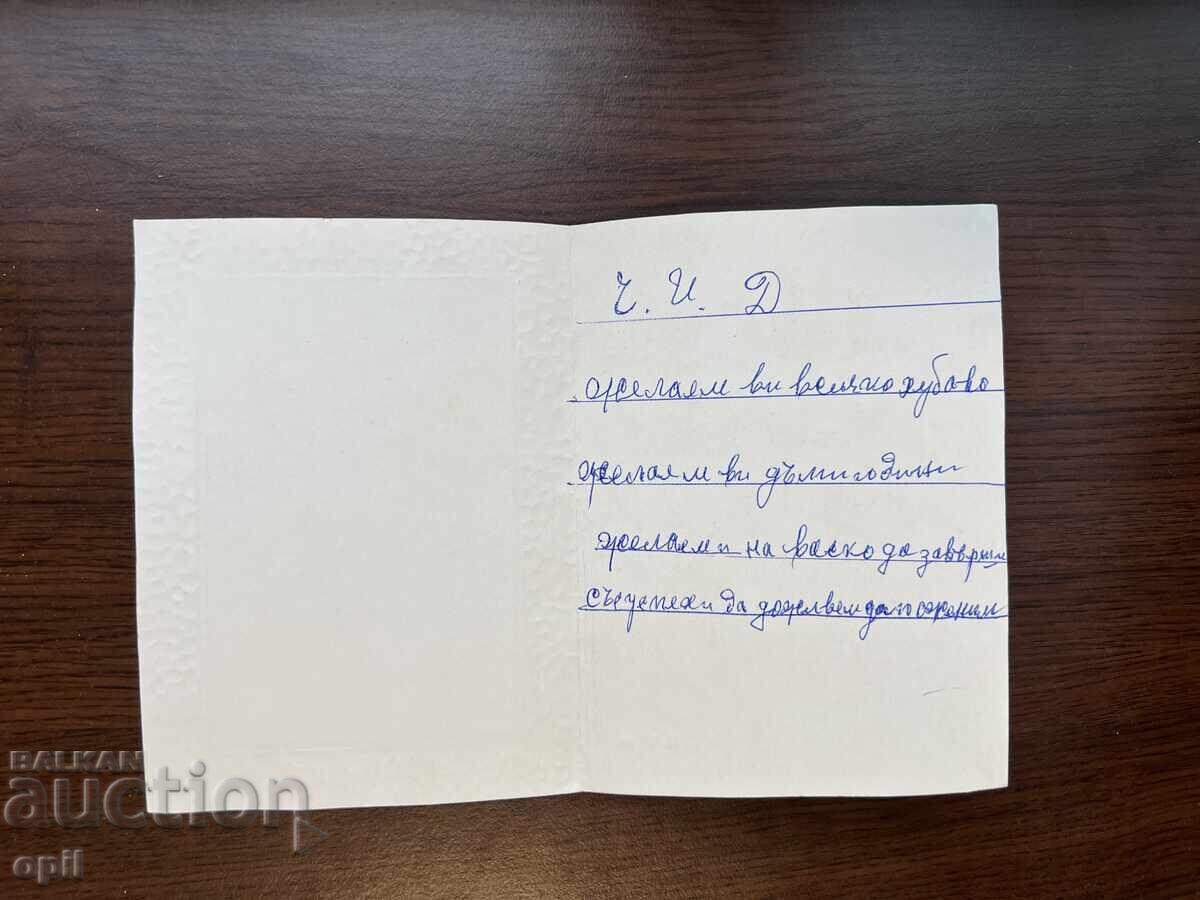 Ч. И. Д
желаем ви всичко хубаво
желаем ви дълги години
желаем и на Васко да завърши
със успехи да доживем да го оженим
BALKAN
auction
opil